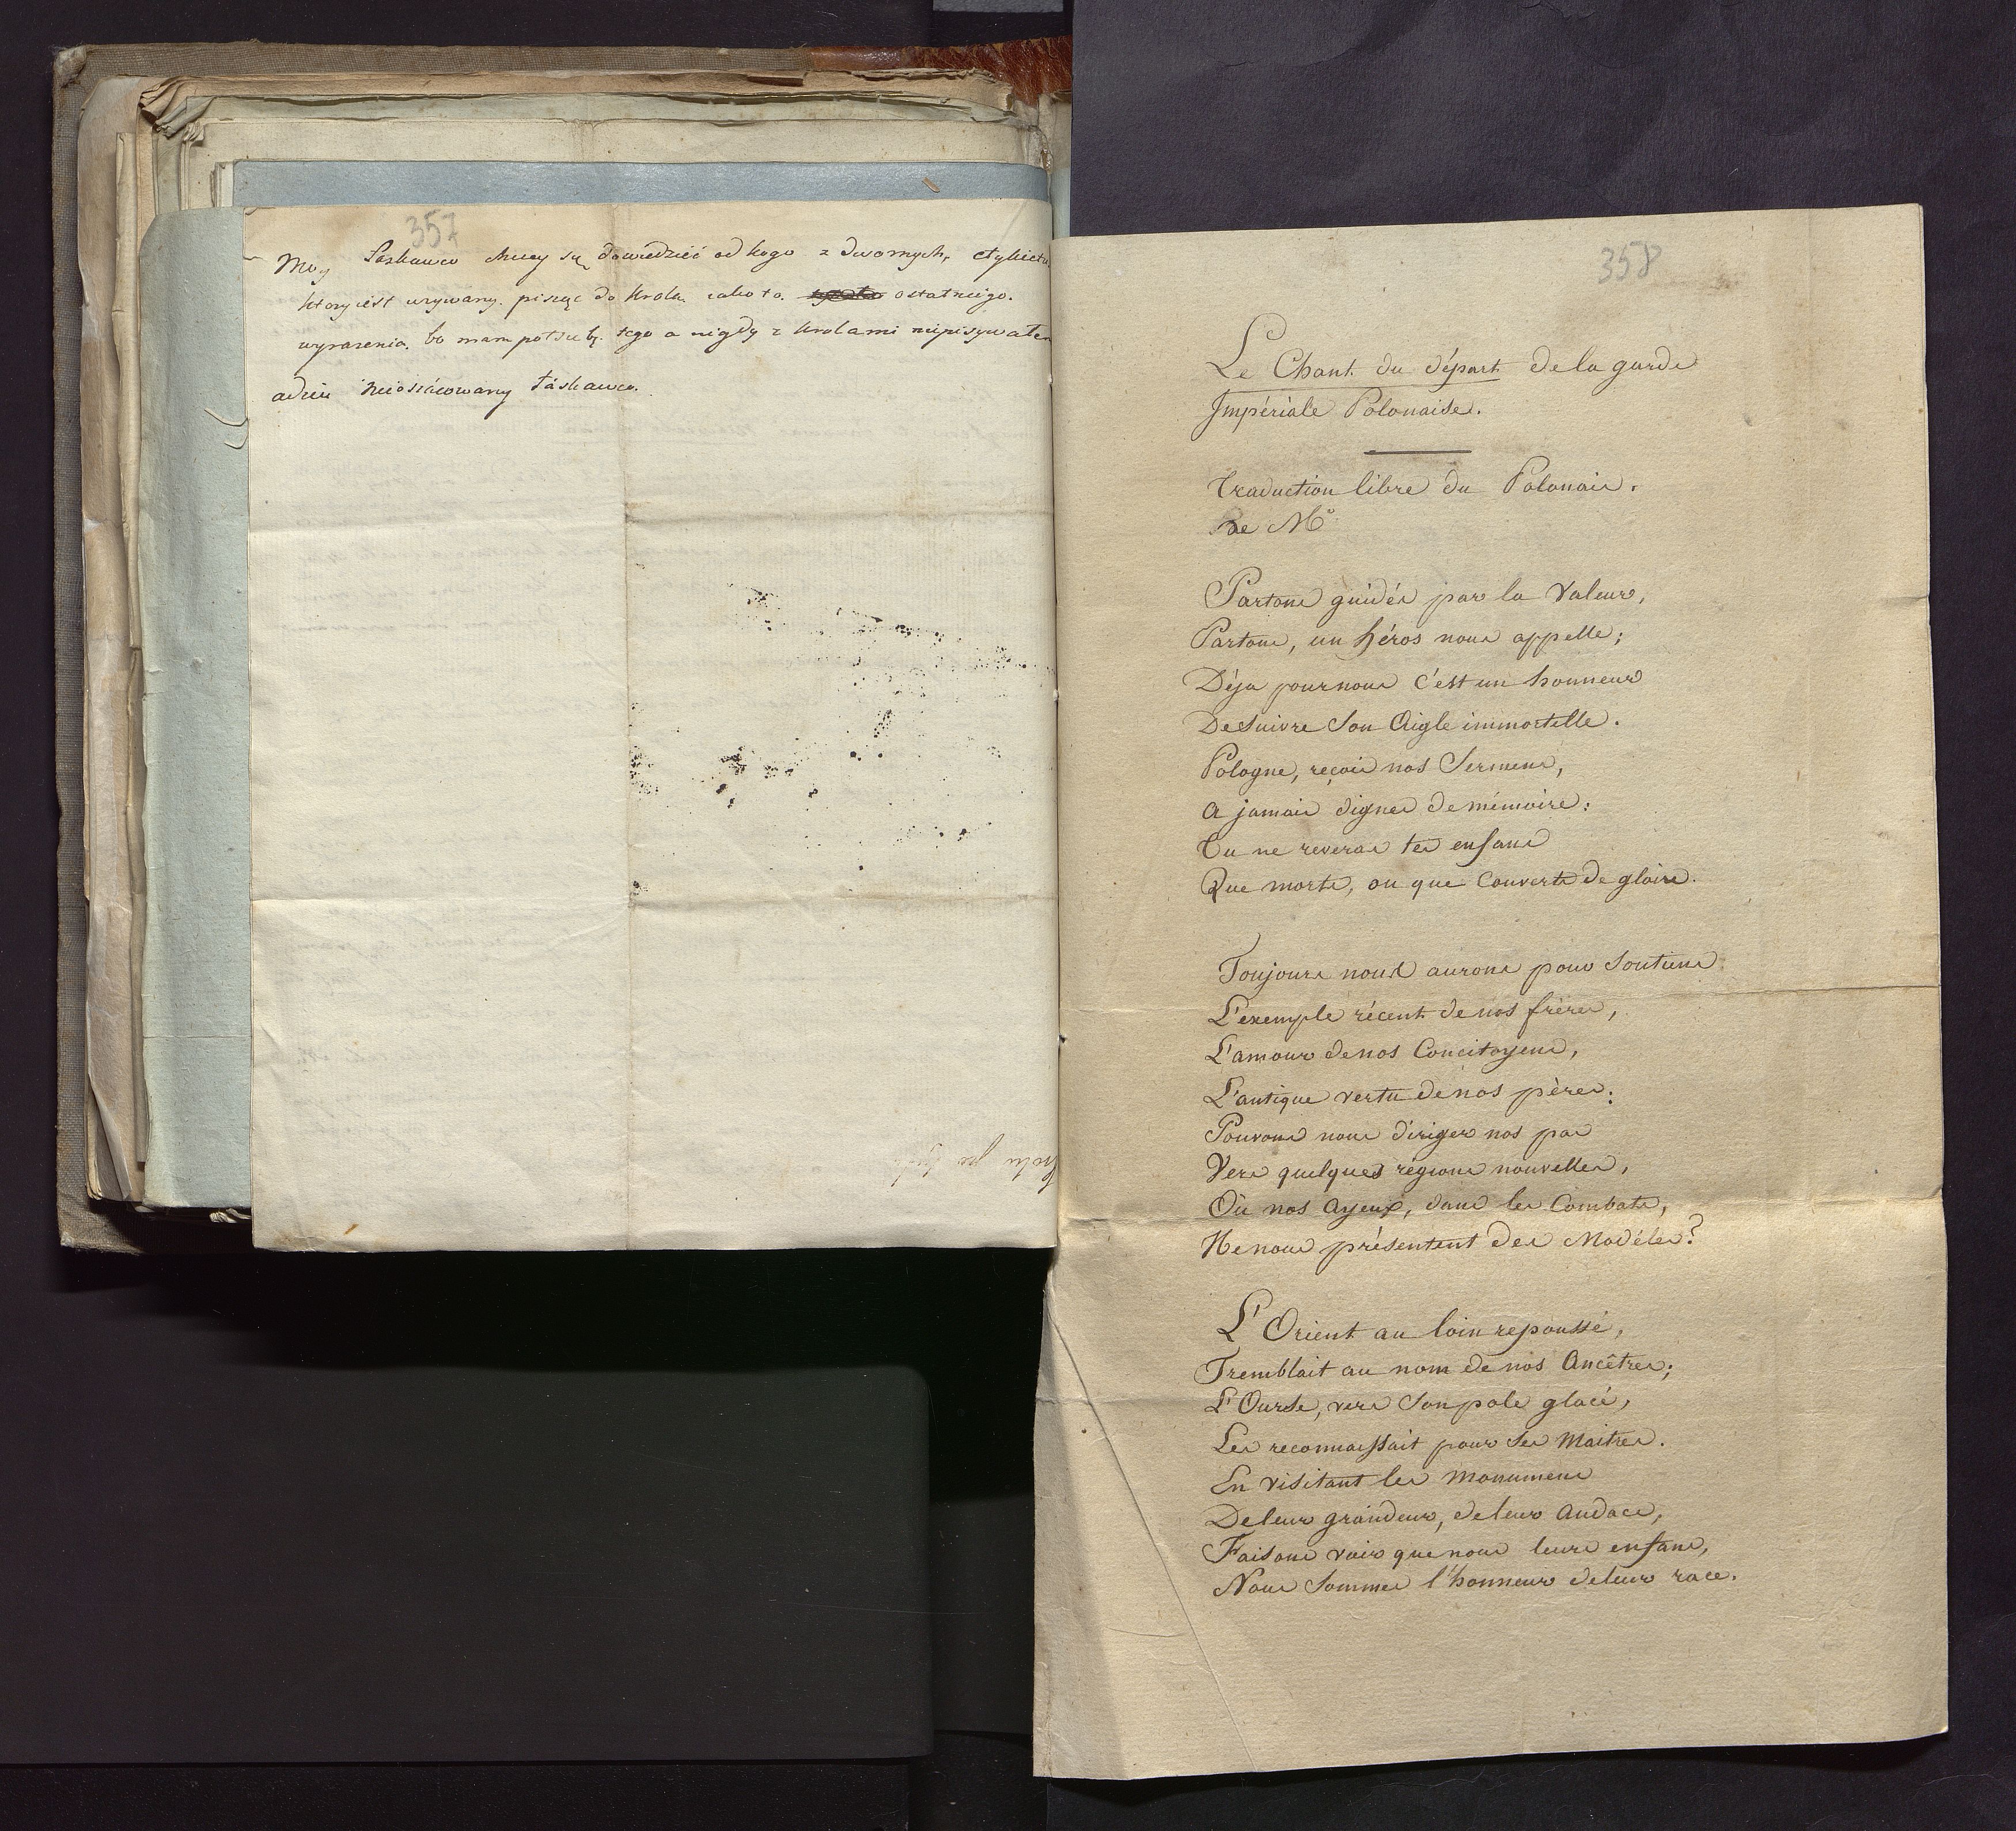 357
Moy Łaskawco chciey się dowiedzieć od kogo z dwornych, etykietu
ktory iest używany. pisząc do krola iako to. ostatniego.
wyrażenia, bo mam potrzebę tego a nigdy z krolami niepisywałem
adieu nieoszacowany Łaskawco.
358
Le Chant du départ de la garde
Impériale Polonaise.
Traduction libre du Polonais.
De Mr
Partons guidés par la Valeur,
Partons, un héros nous appelle;
Déja pour nous c'est un honneur
De suivre Son Aigle immortelle.
Pologne, reçois nos Sermens,
A jamais dignes de mémoire:
Tu ne reveras tes enfans
Que morts, ou que Couverts de gloire.
Toujours nous aurons pour Soutiens
L'exemple récent de nos frères,
L'amour de nos Concitoyens,
L'antique vertu de nos pères:
Pouvons nous diriger nos pas
Vers quelques régions nouvelles,
Où nos Ayeux, dans les Combats,
Ne nous présentent des Modéles?
L'Orient au loin repoussé,
Tremblait au nom de nos Ancêtres;
L'Ourse, vers Son pole glacé,
Les reconnaissait pour Ses Maitres.
En visitant les Monumens
De leur grandeur, de leur Audace,
Faisons voir que nous leurs enfans,
Nous Sommes l'honneur de leur race.